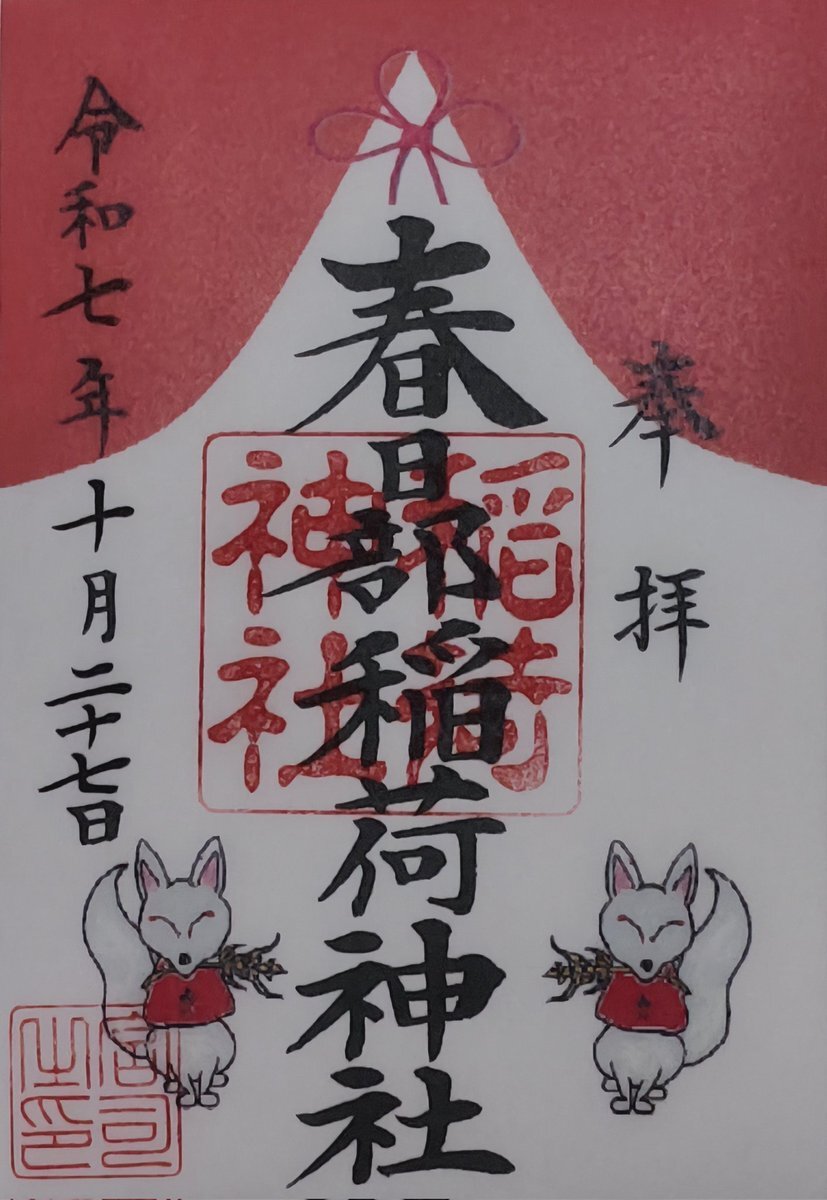 奉拝
春日部稲荷神社
稲荷
神社
令和七年十月二十七日
宮司
之印